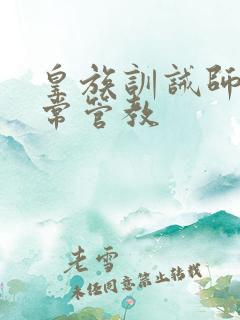 皇族訓誡師
常管教
老雪
未经同意禁止转载